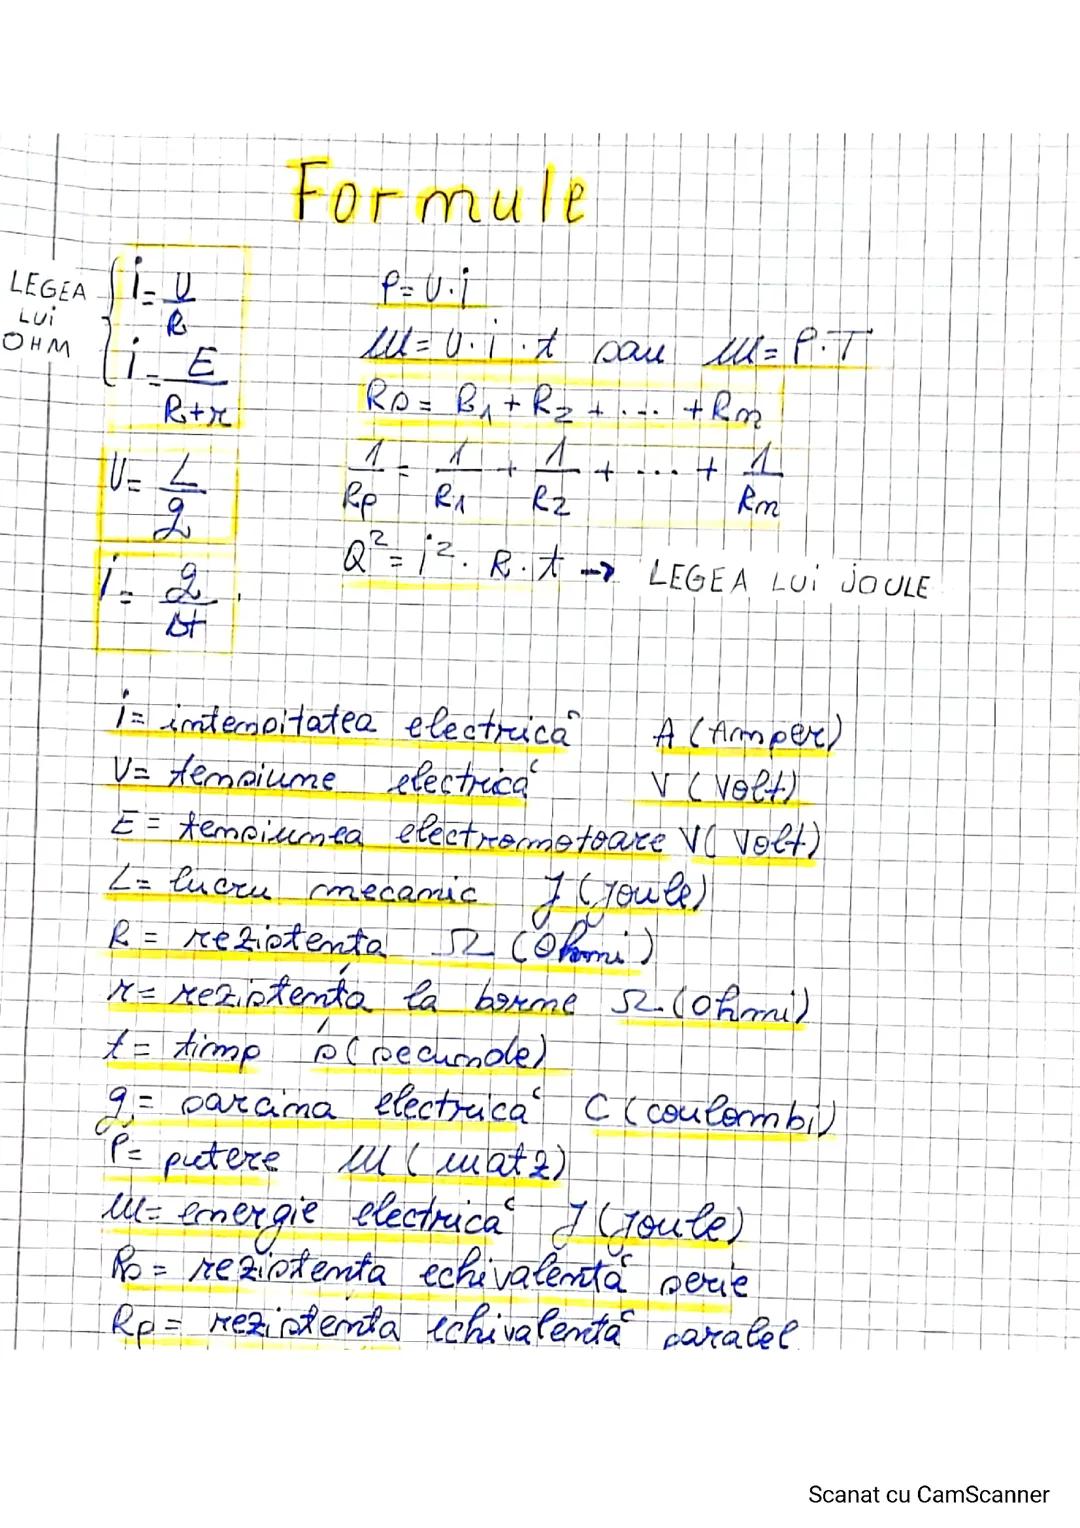 Formule
LEGEA LUI OHM
i = U/R
i = E/(R+r)
U = L/q
i = q/Δt
P = U·i
W = U·i·t sau W = P·T
Rs = R1 + R2 + ... + Rn
1/Rp = 1/R1 + 1/R2 + ... + 1/Rn
Q² = i²·R·t → LEGEA LUI JOULE
i = intensitatea electrică A (Amper)
U = tensiune electrică V (Volt)
E = tensiunea electromotoare V (Volt)
L = lucru mecanic J (Joule)
R = rezistența Ω (Ohmi)
r = rezistența la borne Ω (Ohmi)
t = timp s (secunde)
q = sarcina electrică C (coulombi)
P = putere W (watz)
W = energie electrică J (Joule)
Rs = rezistenta echivalentă serie
Rp = rezistenta echivalentă paralel
Scanat cu CamScanner